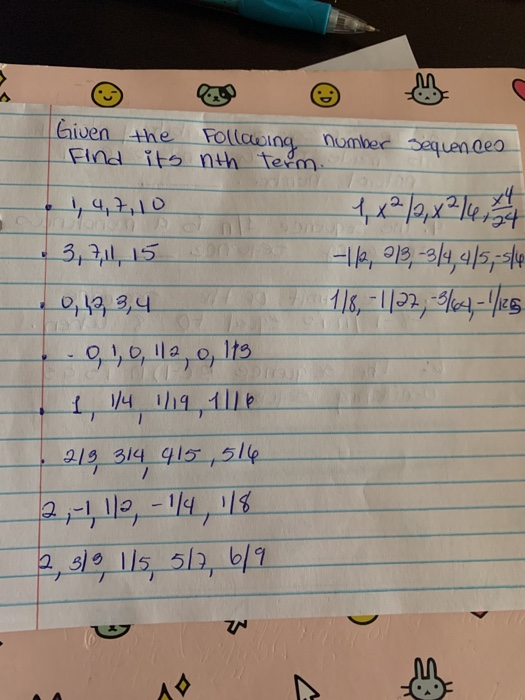 Given the Following number sequences
Find its nth term.
1, 4, 7, 10
1, x²/2, x²/6, x⁴/24
3, 7, 11, 15
-1/2, 2/3, -3/4, 4/5, -5/6
0, 1, 2, 3, 4
1/8, -1/27, -3/64, -1/125
0, 1, 0, 1/2, 0, 1/3
1, 1/4, 1/19, 1/16
2/3, 3/4, 4/5, 5/6
2, -1, 1/2, -1/4, 1/8
2, 3/3, 1/5, 5/7, 6/9